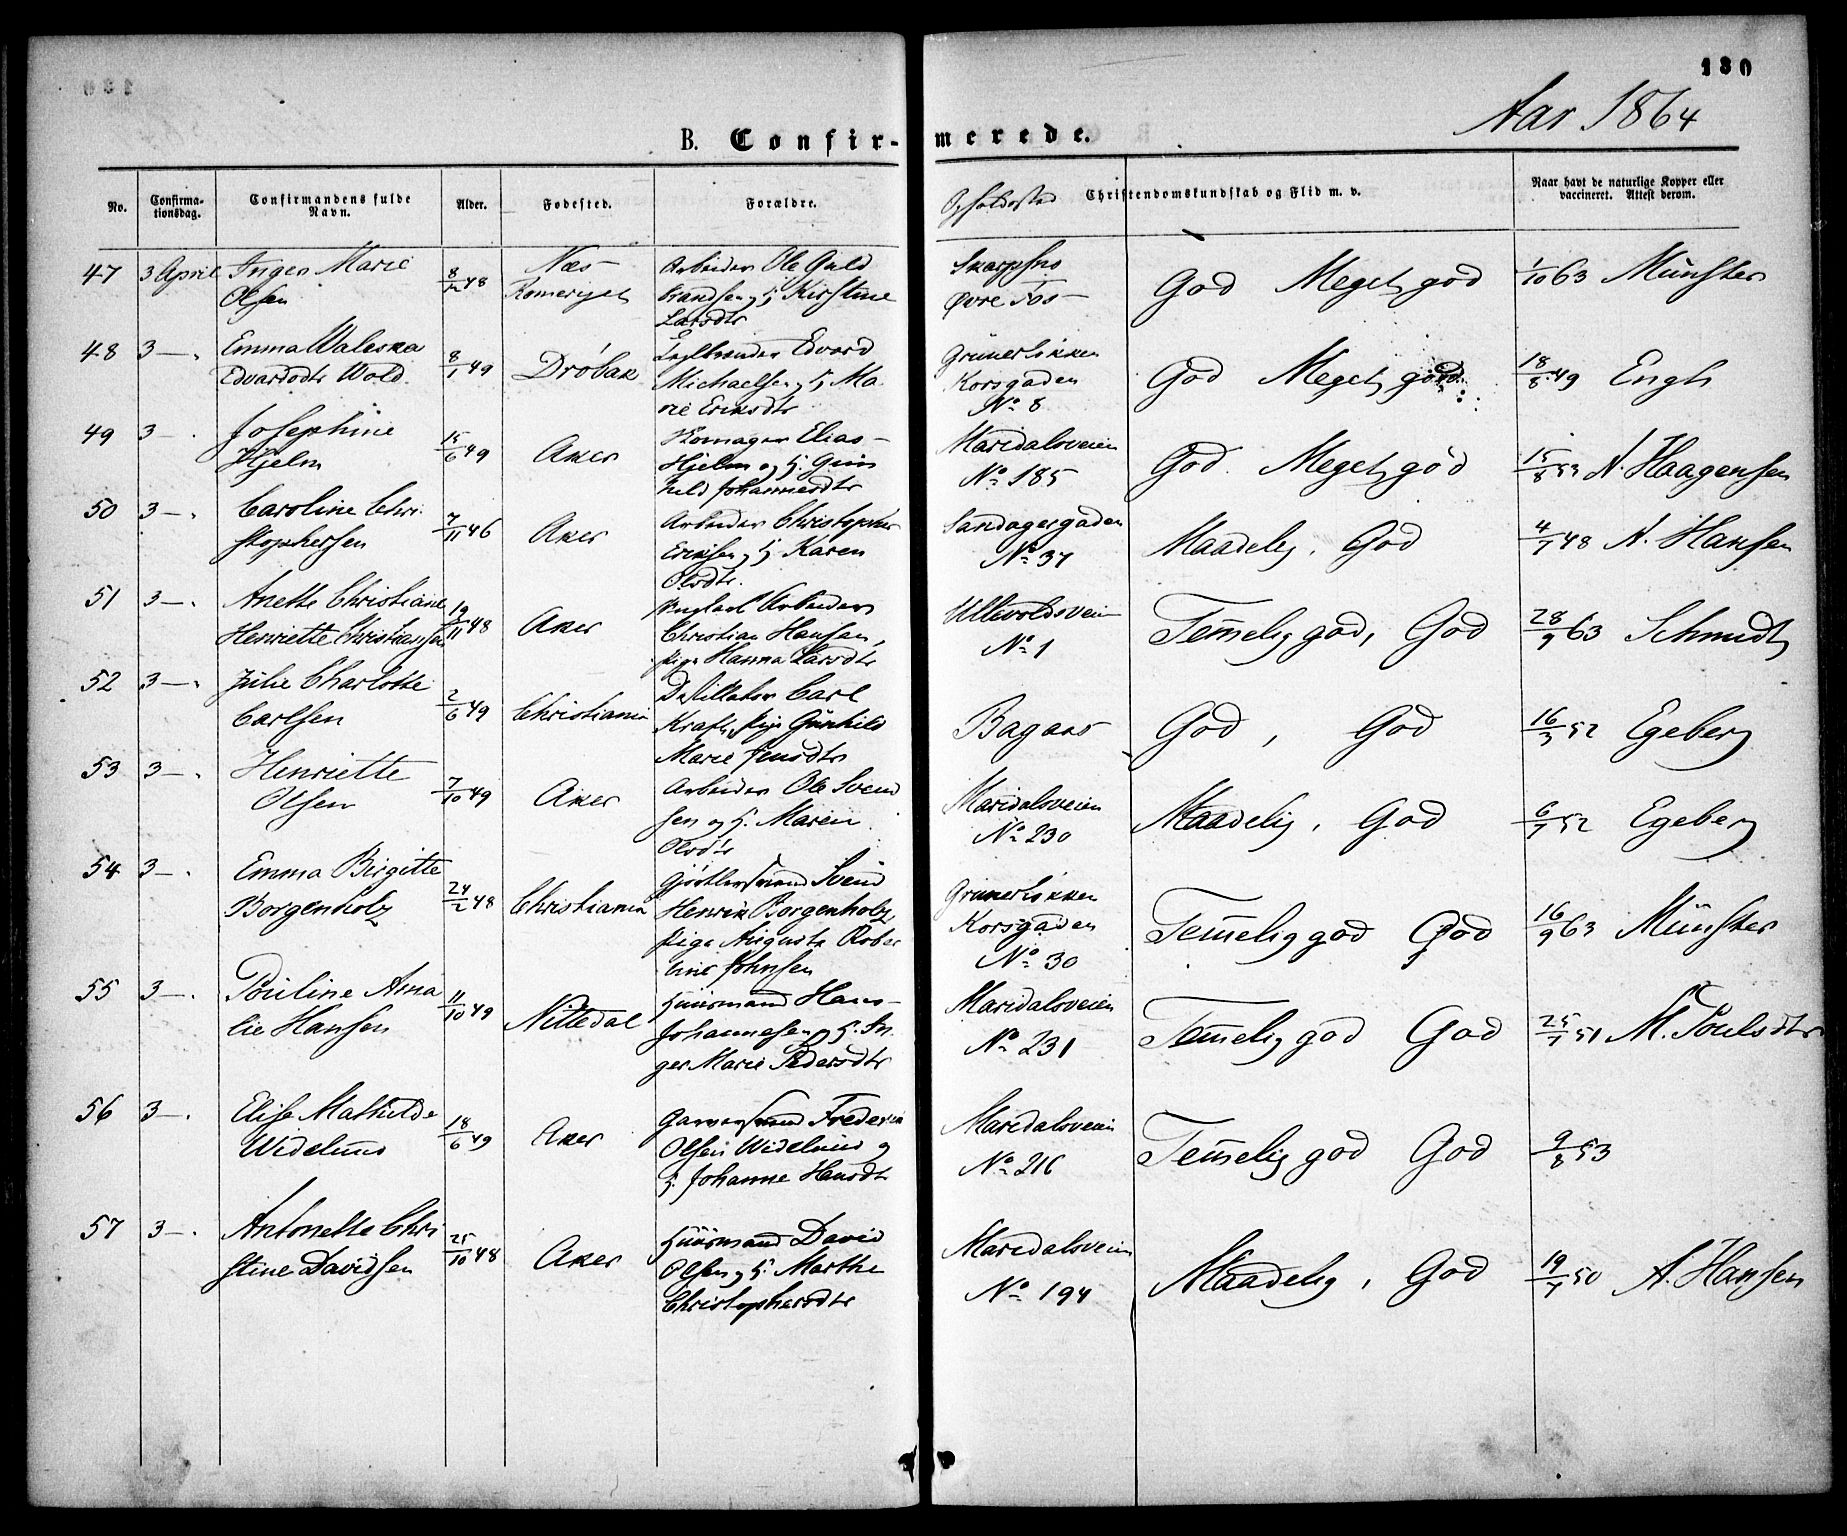 130
Aar 1864
B. Confirmerede.
No. Confirmationsdag. Confirmandens fulde Navn. Alder. Fødested. Forældre. Opholdssted Christendomskundskab og Flid m. v. Naar havt de naturlige Kopper eller vaccineret. Attest derom.
47 3 April Inger Marie 8/12 48 Næs Arbeider Ole Guld
Olsen Romeriget brandsen og H. Kirstine
Larsdtr
Skarpsno
Øvre Fos God Meget god 1/10 63 Münster
48 3 — Emma Waleska 8/1 49 Drøbak Edvard
Edvardsdtr Wold. Michaelsen og H. Ma
rie Eriksdtr
Grünerløkken
Korsgaden
No 8 God Meget god 18/8 49 Engh
49 3 — Josephine 15/6 49 Aker Skomager Elias
Hjelm Hjelm og H. Gun
hild Johannesdtr
Maridalsveien
No 185 God. Meget god 15/8 53 N. Haagensen
50 3 — Caroline Chri 7/11 46 Aker Arbeider Christopher
stophersen Eriksen og H. Karen
Olsdtr.
Sandagergaden
No 37 Maadelig. God 4/7 48 N. Hansen
51 3 — Anette Christiane 19/11 48 Aker Arbeider
Henriette Christiansen Christian Hansen,
Pige Hanna Larsdtr
Ullevoldsvein
No 1 Temmelig god, God 28/9 63 Schmidt
52 3 — Julie Charlotte 2/6 49 Christiania Destillatør Carl
Carlsen Kraft, Pige Gunhild
Marie Jensdtr
Bagaas God, God 16/3 52 Egeberg
53 3 — Henriette 7/10 49 Aker Arbeider Ole Svend
Olsen sen og H. Maren
Olsdtr
Maridalsveien
No 230 Maadelig. God 6/7 52 Egeberg
54 3 — Emma Birgitte 24/2 48 Christiania Gjørtlersvend Svend
Borgenholz Henrik Borgenholz,
Pige Augusta Rober
tine Johnsen
Grünerløkken
Korsgaden
No 30 Temmelig god God 16/9 63 Münster
55 3 — Pouline Ama 11/10 49 Nittedal Huusmand Hans
lie Hansen Johannesen og H. In
ger Marie Pedersdtr
Maridalsveien
No 231 Temmelig god God 25/7 51 M. Poulsdtr
56 3 — Elise Mathilde 18/6 49 Aker Garversvend Frederik
Widelund Olsen Widelund og
H. Johanne Hansdtr
Maridalsveien
No 216 Temmelig god God 9/8 53
57 3 — Antonette Chri 25/10 48 Aker Huusmand David
stine Davidsen Olsen og H. Marthe
Christophersdtr
Maridalsveien
No 194 Maadelig, God 19/7 50 A. Hansen